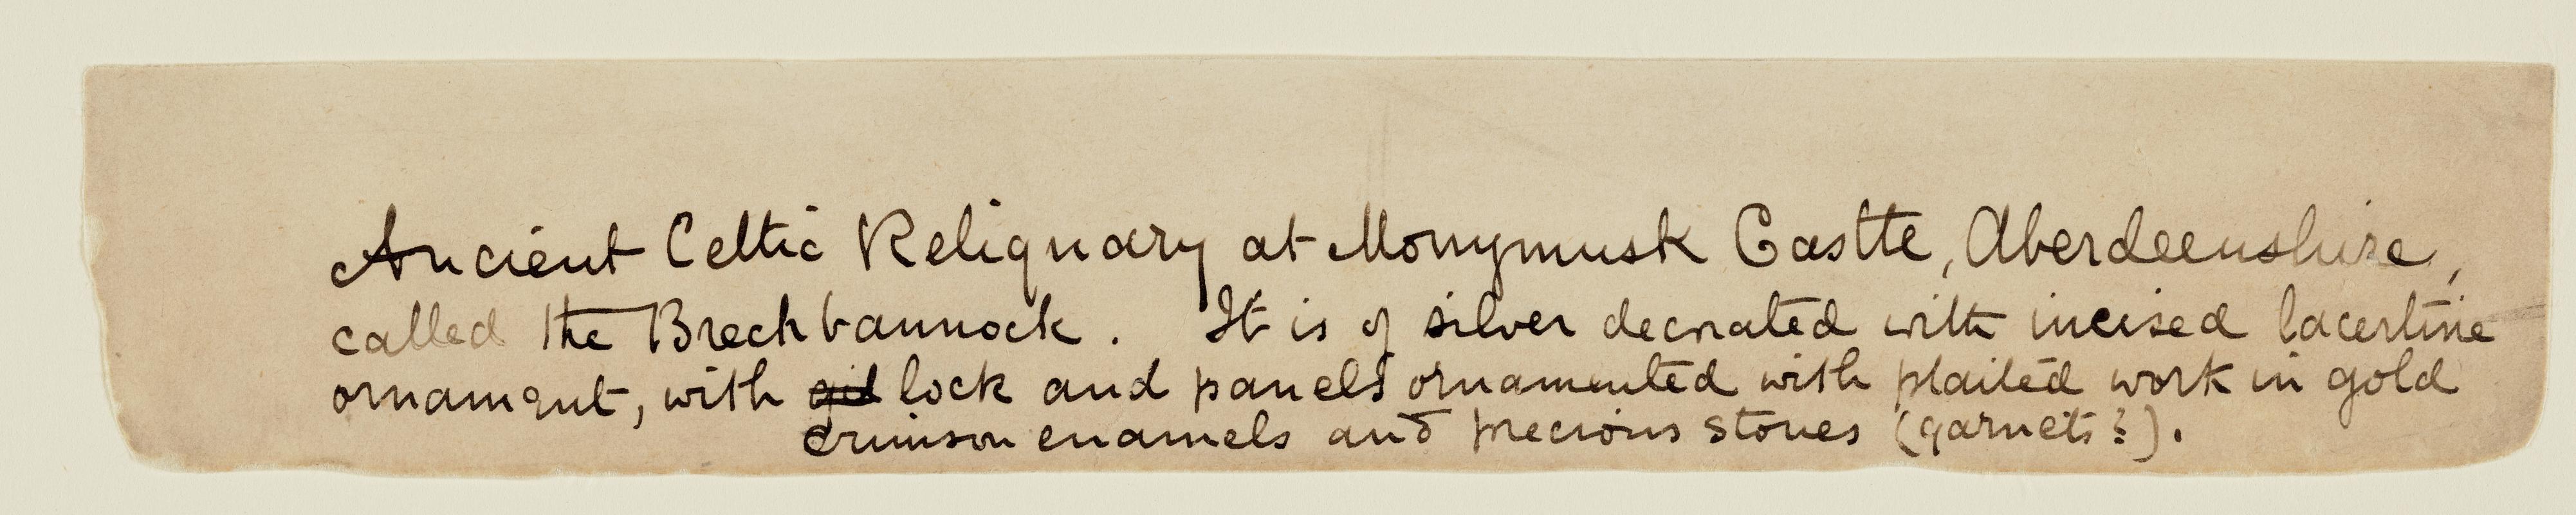 Ancient Celtic Reliquary at Monymusk Castle, Aberdeenshire,
called the Brechbannock. It is of silver decorated with incised lacertine
ornament, with lock and panels ornamented with plaited work in gold
crimson enamels and precious stones (garnets?).